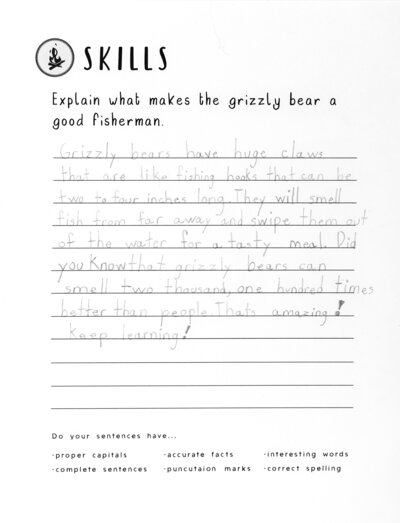 SKILLS
Explain what makes the grizzly bear a
good fisherman.
Grizzly bears have huge claws
that are like fishing hooks that can be
two to four inches long. They will smell
fish from far away and swipe them out
of the water for a tasty meal. Did
you Know that grizzly bears can
smell two thousand, one hundred times
better than people. Thats amazing!
Keep learning!
Do your sentences have...
·proper capitals ·accurate facts ·interesting words
·complete sentences ·puncutaion marks ·correct spelling